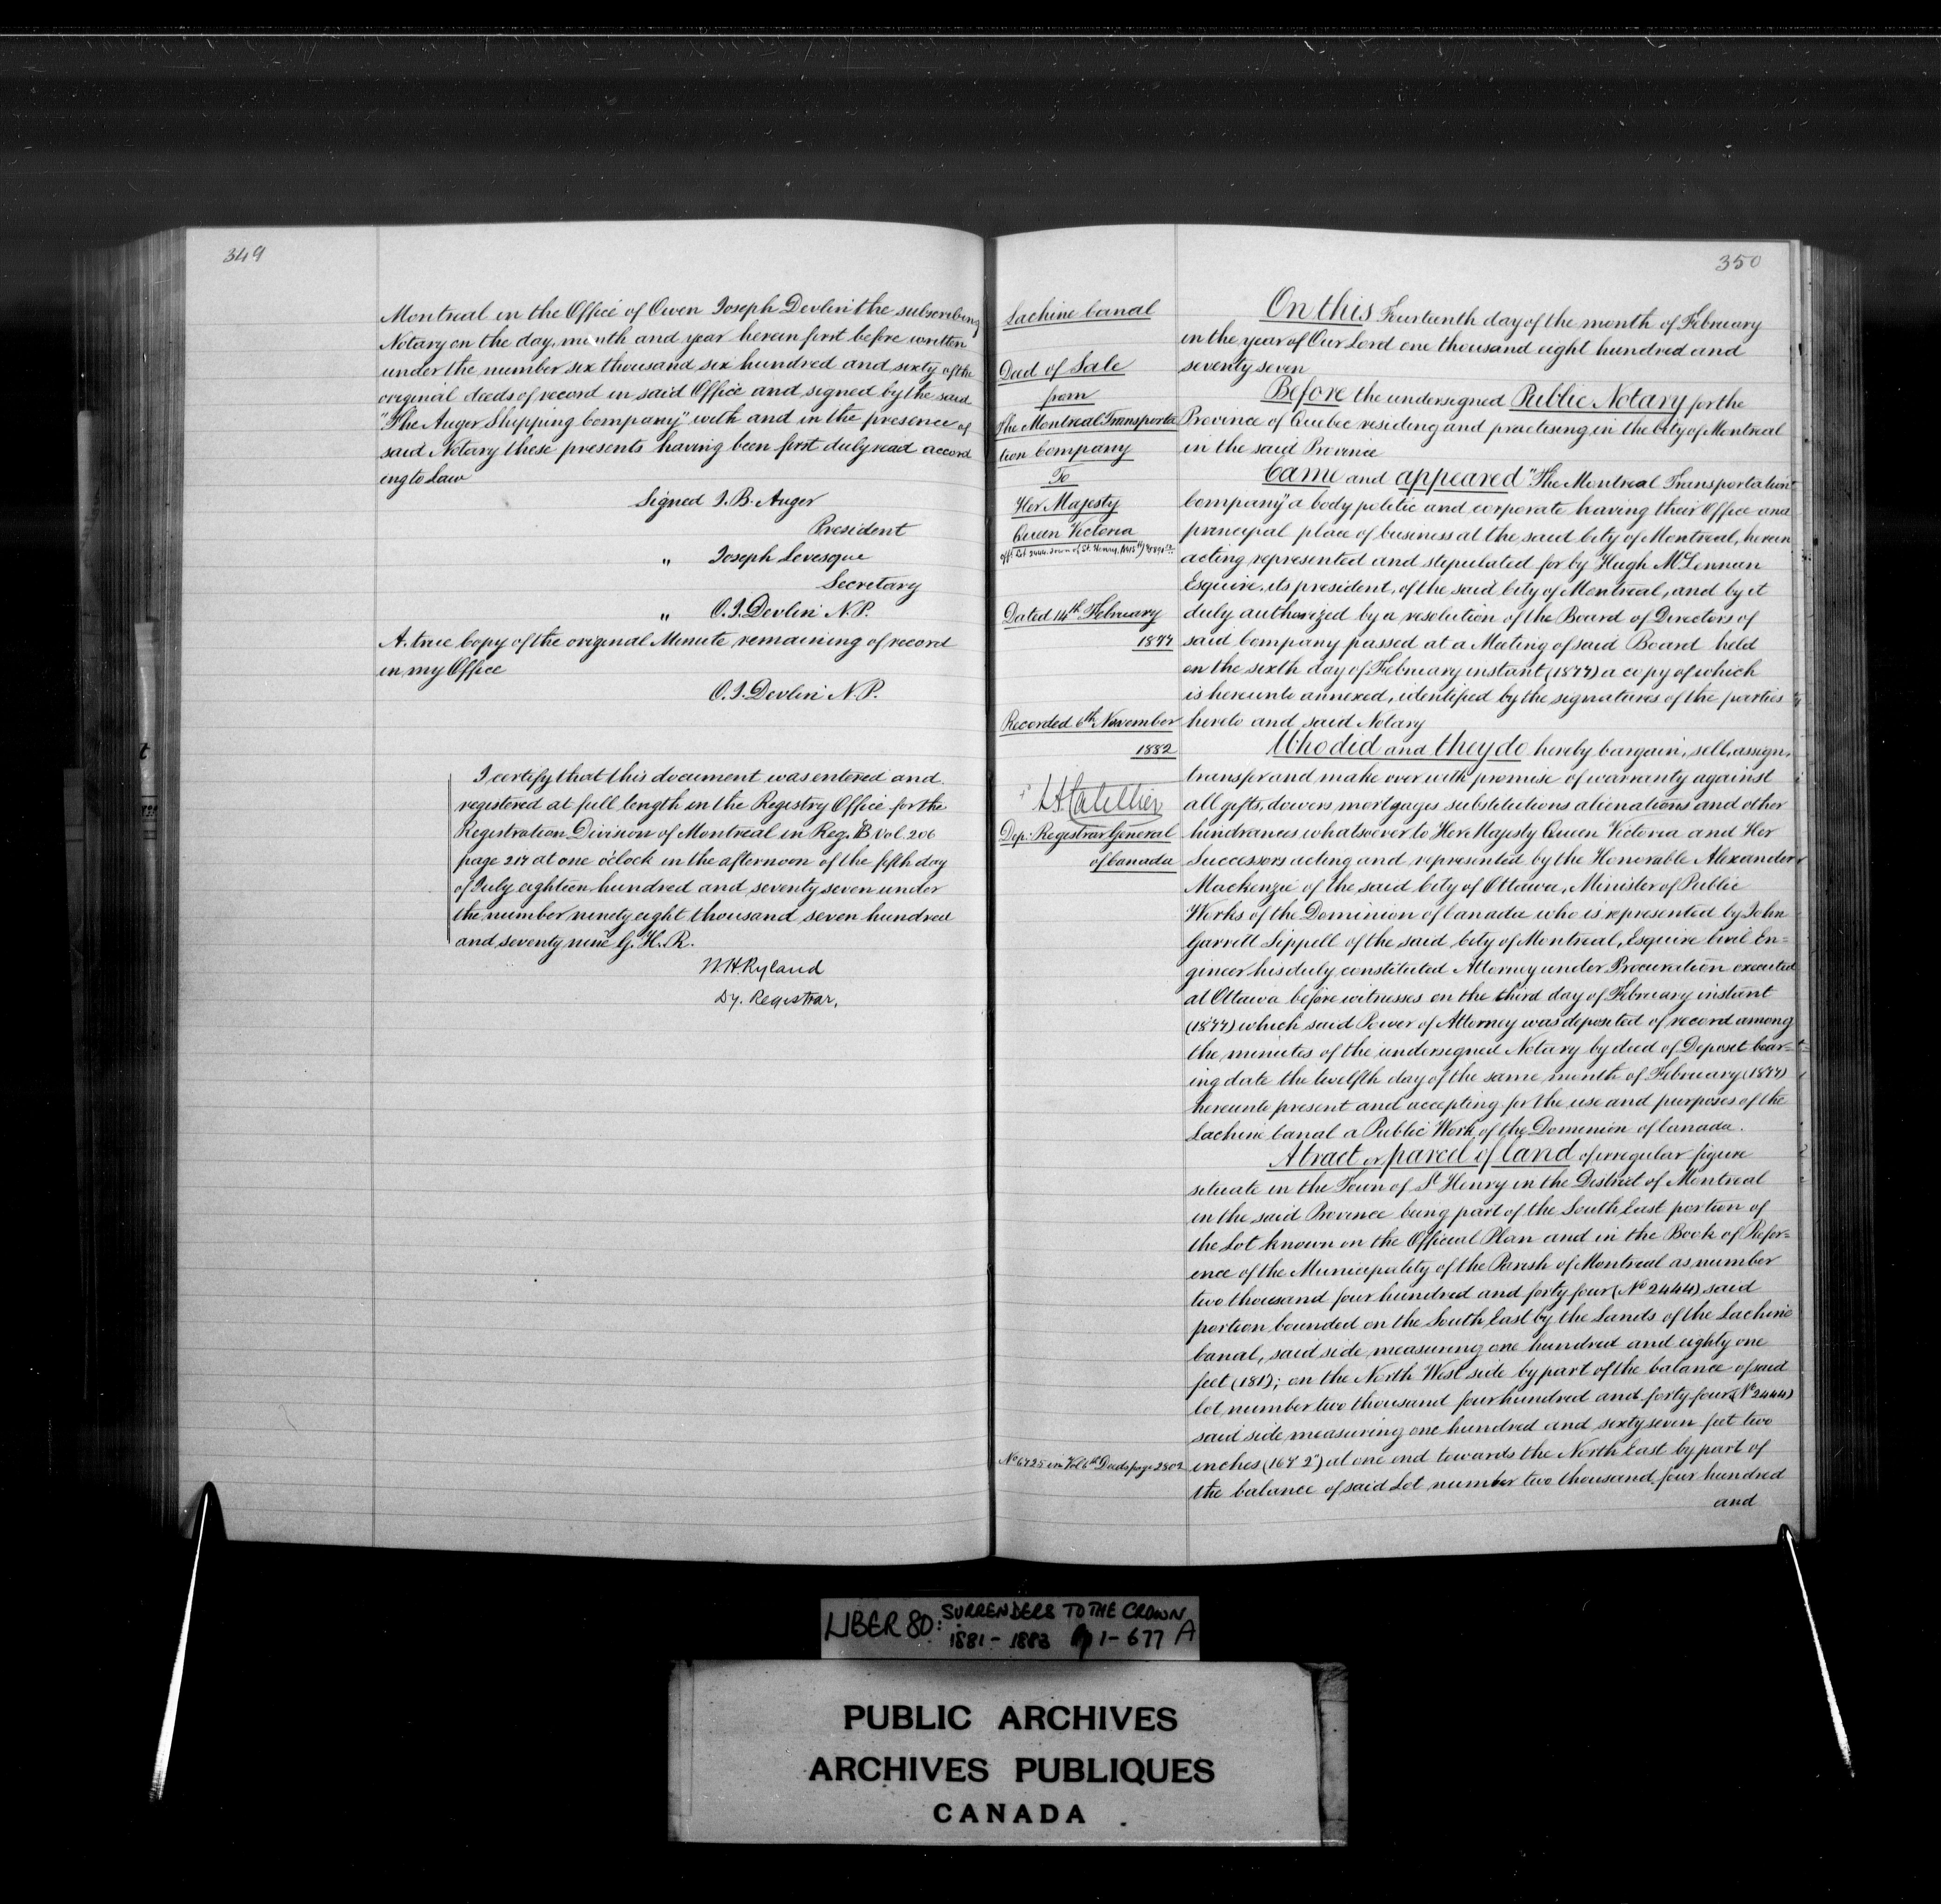 349
Montreal in the Office of Owen Joseph Devlin the subscribing
Notary on the day, month and year herein first before written
under the number six thousand six hundred and sixty of the
original deeds of record in said Office and signed by the said
"The Auger Shipping Company" with and in the presence of
said Notary these presents having been first duly read accord
ing to Law
Signed J. B. Auger
President
" Joseph Levesque
Secretary
" O. J. Devlin N.P.
A true Copy of the original Minute remaining of record
in my Office
O. J. Devlin N.P.
I certify that this document was entered and
registered at full length in the Registry Office for the
Registration Division of Montreal in Reg. B Vol. 206
page 217 at one o'clock in the afternoon of the fifth day
of July eighteen hundred and seventy seven under
the number ninety eight thousand seven hundred
and seventy nine G. H. R.
W. H. Ryland
Dy. Registrar.
350
Lachine Canal
Deed of Sale
from
The Montreal Transporta
tion Company
To
Her Majesty
Queen Victoria
Dated 14th February
1877
Recorded 6th November
1882
Dep: Registrar General
of Canada
No 6725 in Vol 6th Deeds page 2802
On this Fourteenth day of the month of February
in the year of Our Lord one thousand eight hundred and
seventy seven
Before the undersigned Public Notary for the
Province of Quebec residing and practising in the City of Montreal
in the said Province
Came and appeared "The Montreal Transportation
Company" a body politic and corporate having their Office and
principal place of business at the said City of Montreal, herein
acting represented and stipulated for by Hugh McLennan
Esquire, its president, of the said City of Montreal, and by it
duly authorized by a resolution of the Board of Directors of
said Company passed at a Meeting of said Board held
on the sixth day of February instant (1877) a copy of which
is hereunto annexed, identified by the signatures of the parties
hereto and said Notary
Who did and they do hereby bargain, sell, assign,
transfer and make over with promise of warranty against
all gifts, dowers mortgages substitutions alienations and other
hindrances whatsoever to Her Majesty Queen Victoria and Her
Successors acting and represented by the Honorable Alexander
Mackenzie of the said City of Ottawa, Minister of Public
Works of the Dominion of Canada who is represented by John
Garrett Sippell of the said City of Montreal, Esquire Civil En=
gineer his duly constituted Attorney under Procuration executed
at Ottawa before witnesses on the third day of February instant
(1877) which said Power of Attorney was deposited of record among
the minutes of the undersigned Notary by deed of Deposit bear=
ing date the twelfth day of the same month of February (1877)
hereunto present and accepting for the use and purposes of the
Lachine Canal a Public Work of the Dominion of Canada.
A tract or parcel of land of irregular figure
situate in the Town of St Henry in the District of Montreal
in the said Province being part of the South East portion of
the Lot known on the Official Plan and in the Book of Refer=
ence of the Municipality of the Parish of Montreal as number
two thousand four hundred and forty four (No 2444) said
portion bounded on the South East by the Lands of the Lachine
Canal, said side measuring one hundred and eighty one
feet (181); on the North West side by part of the balance of said
lot number two thousand four hundred and forty four (No 2444)
said side measuring one hundred and sixty seven feet two
inches (167' 2") at one end towards the North East by part of
the balance of said Lot number two thousand four hundred
and
LIBER 80: SURRENDERS TO THE CROWN
1881 - 1883 pp 1-677 A
PUBLIC ARCHIVES
ARCHIVES PUBLIQUES
CANADA